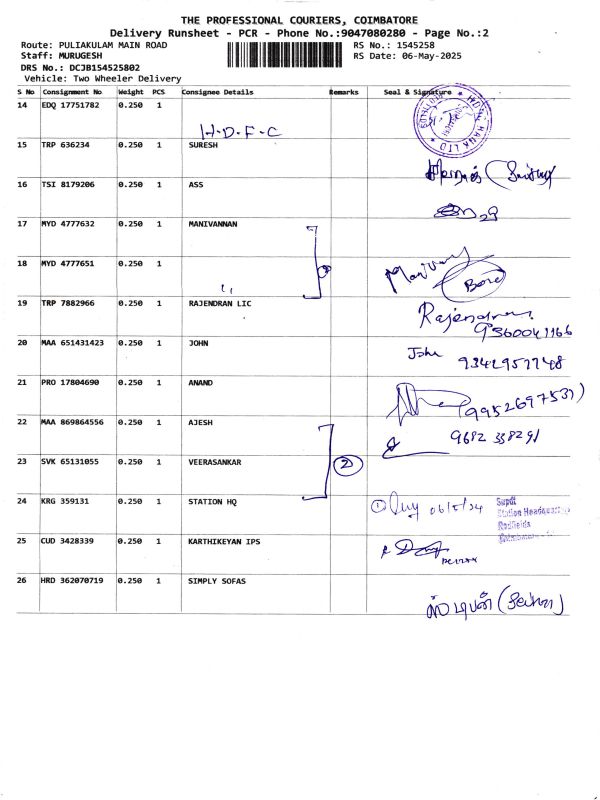 THE PROFESSIONAL COURIERS, COIMBATORE
Delivery Runsheet - PCR - Phone No.:9047080280 - Page No.:2
Route: PULIAKULAM MAIN ROAD RS No.: 1545258
Staff: MURUGESH RS Date: 06-May-2025
DRS No.: DCJB154525802
Vehicle: Two Wheeler Delivery
S No Consignment No Weight PCS Consignee Details Remarks Seal & Signature
14 EDQ 17751782 0.250 1
H-D-F-C
15 TRP 636234 0.250 1 SURESH
16 TSI 8179206 0.250 1 ASS
17 MYD 4777632 0.250 1 MANIVANNAN
18 MYD 4777651 0.250 1
19 TRP 7882966 0.250 1 RAJENDRAN LIC Rajendran
9360041166
20 MAA 651431423 0.250 1 JOHN John 9342957748
21 PRO 17804690 0.250 1 ANAND (9952697537)
22 MAA 869864556 0.250 1 AJESH 9682338291
23 SVK 65131055 0.250 1 VEERASANKAR 2
24 KRG 359131 0.250 1 STATION HQ 1 06/5/24 Supdt
Station Headquarters
Redfields
25 CUD 3428339 0.250 1 KARTHIKEYAN IPS
26 HRD 362070719 0.250 1 SIMPLY SOFAS